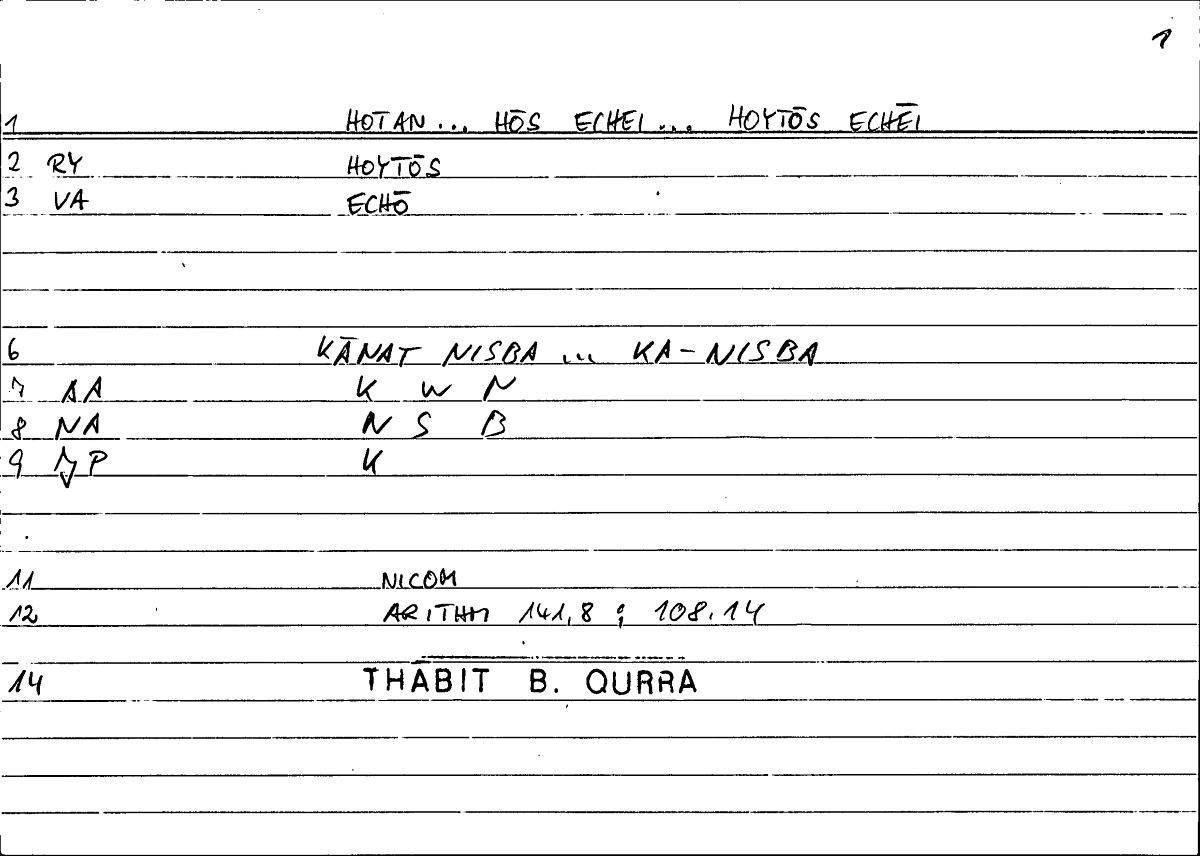 1
1 HOTAN... HŌS ECHEI... HOYTŌS ECHĒI
2 RY HOYTŌS
3 VA ECHŌ
6 KĀNAT NISBA ... KA-NISBA
7 AA K W N
8 NA N S B
9 JP K
11 NICOM
12 ARITHM 141,8 ; 108.14
14 THĀBIT B. QURRA